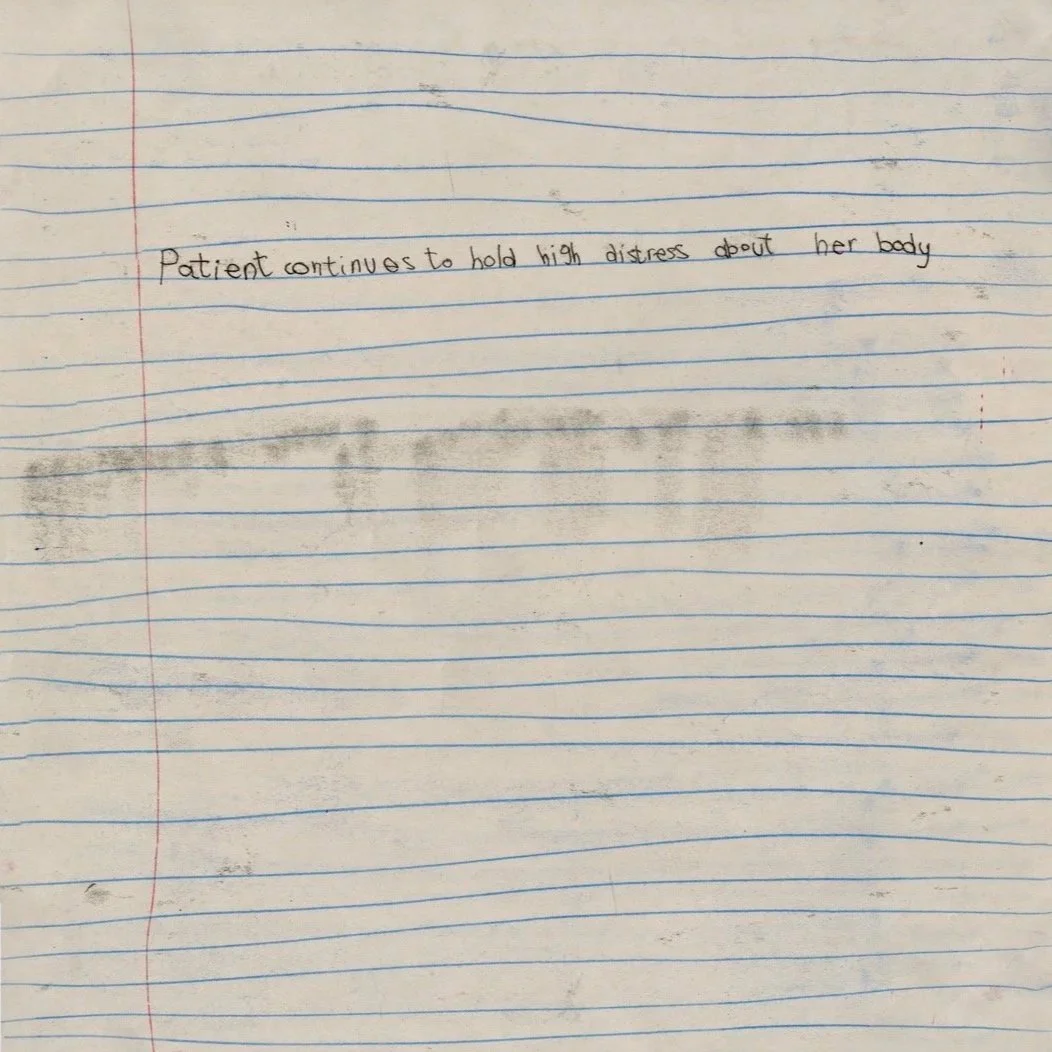 Patient continues to hold high distress about her body